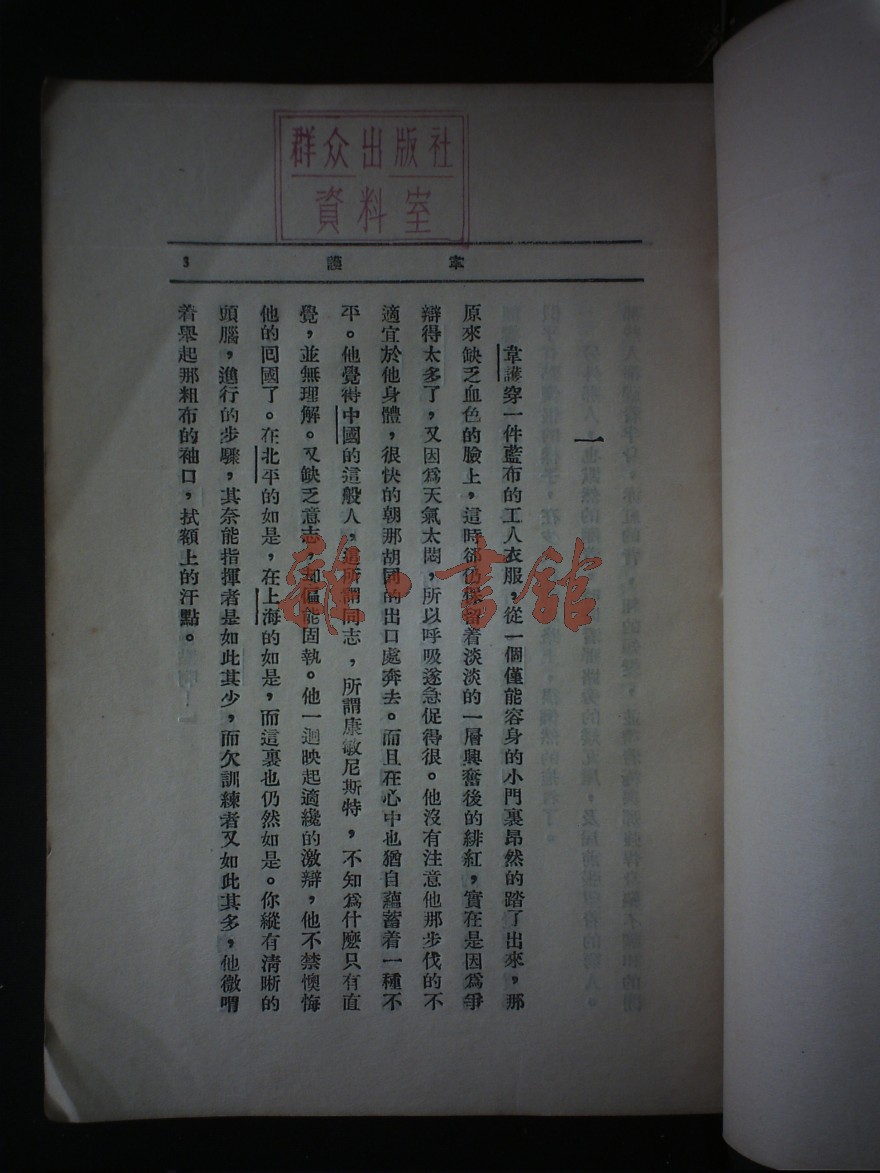 群众出版社
資料室
韋護 3
一
韋護穿一件藍布的工人衣服，從一個僅能容身的小門裏昂然的踏了出來，那
原來缺乏血色的臉上，這時卻仍保留着淡淡的一層興奮後的緋紅，實在是因爲爭
辯得太多了，又因爲天氣太悶，所以呼吸遂急促得很。他沒有注意他那步伐的不
適宜於他身體，很快的朝那胡同的出口處奔去。而且在心中也猶自蘊蓄着一種不
平。他覺得中國的這般人，這所謂同志，所謂康敏尼斯特，不知爲什麼只有直
覺，並無理解。又缺乏意志，却偏能固執。他一迴映起適纔的激辯，他不禁懊悔
他的囘國了。在北平的如是，在上海的如是，而這裏也仍然如是。你縱有清晰的
頭腦，進行的步驟，其奈能指揮者是如此其少，而欠訓練者又如此其多，他微喟
着舉起那粗布的袖口，拭額上的汗點。
雜·書館